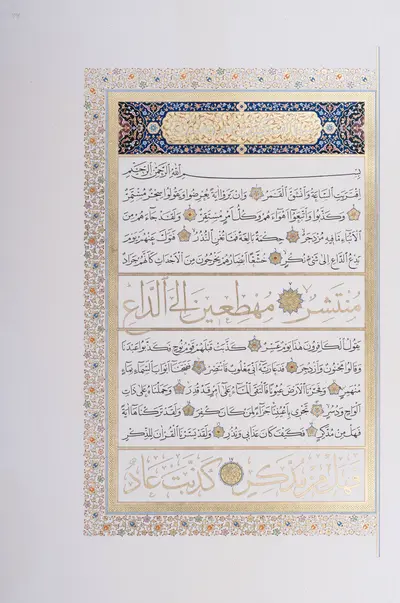 بِسْمِ اللهِ الرَّحْمٰنِ الرَّحِيمِ
اقْتَرَبَتِ السَّاعَةُ وَانْشَقَّ الْقَمَرُ وَاِنْ يَرَوْا اٰيَةً يُعْرِضُوا وَيَقُولُوا سِحْرٌ مُسْتَمِرٌّ
وَكَذَّبُوا وَاتَّبَعُوا اَهْوَاءَهُمْ وَكُلُّ اَمْرٍ مُسْتَقِرٌّ وَلَقَدْ جَاءَهُمْ مِنَ
الْاَنْبَاءِ مَا فِيهِ مُزْدَجَرٌ حِكْمَةٌ بَالِغَةٌ فَمَا تُغْنِ النُّذُرُ فَتَوَلَّ عَنْهُمْ يَوْمَ
يَدْعُ الدَّاعِ اِلٰى شَيْءٍ نُكُرٍ خُشَّعًا اَبْصَارُهُمْ يَخْرُجُونَ مِنَ الْاَجْدَاثِ كَاَنَّهُمْ جَرَادٌ
مُنْتَشِرٌ مُهْطِعِينَ اِلَى الدَّاعِ
يَقُولُ الْكَافِرُونَ هٰذَا يَوْمٌ عَسِرٌ كَذَّبَتْ قَبْلَهُمْ قَوْمُ نُوحٍ فَكَذَّبُوا عَبْدَنَا
وَقَالُوا مَجْنُونٌ وَازْدُجِرَ فَدَعَا رَبَّهُ اَنِّي مَغْلُوبٌ فَانْتَصِرْ فَفَتَحْنَا اَبْوَابَ السَّمَاءِ بِمَاءٍ
مُنْهَمِرٍ وَفَجَّرْنَا الْاَرْضَ عُيُونًا فَالْتَقَى الْمَاءُ عَلٰى اَمْرٍ قَدْ قُدِرَ وَحَمَلْنَاهُ عَلٰى ذَاتِ
اَلْوَاحٍ وَدُسُرٍ تَجْرِي بِاَعْيُنِنَا جَزَاءً لِمَنْ كَانَ كُفِرَ وَلَقَدْ تَرَكْنَاهَا اٰيَةً
فَهَلْ مِنْ مُدَّكِرٍ فَكَيْفَ كَانَ عَذَابِي وَنُذُرِ وَلَقَدْ يَسَّرْنَا الْقُرْاٰنَ لِلذِّكْرِ
فَهَلْ مِنْ مُدَّكِرٍ كَذَّبَتْ عَادٌ